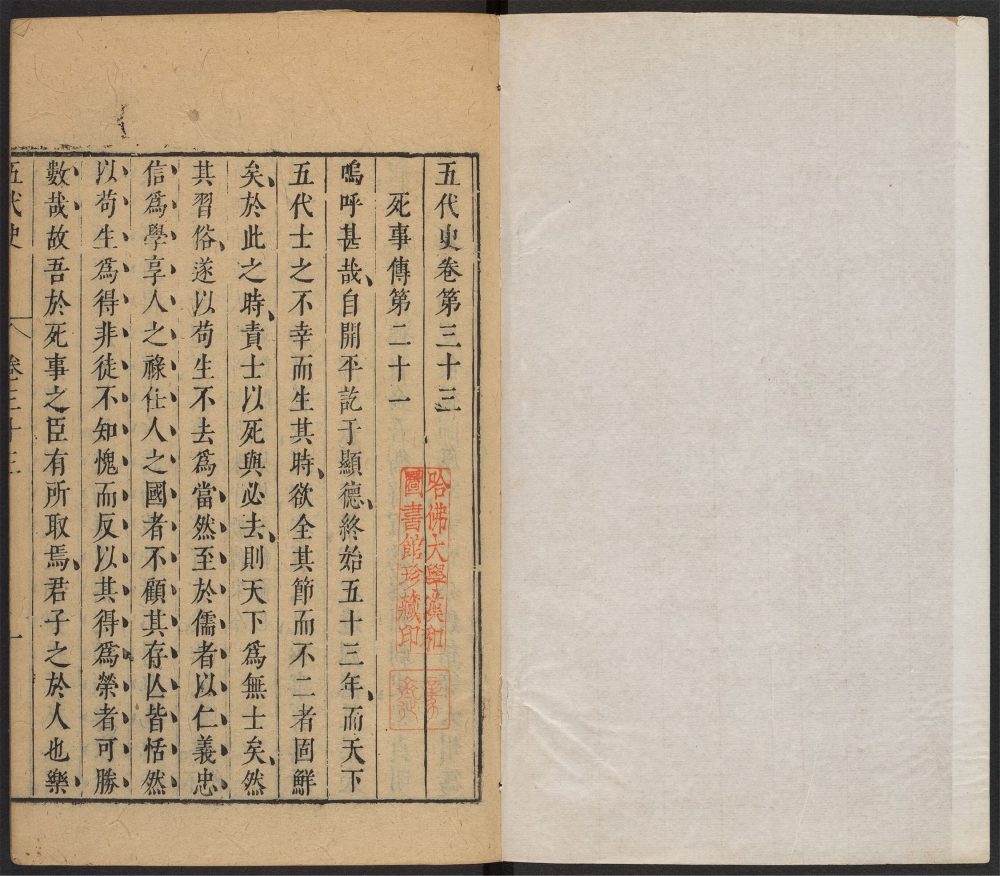 五代史卷第三十三
死事傳第二十一
嗚呼甚哉自開平訖于顯德終始五十三年而天下
五代士之不幸而生其時欲全其節而不二者固鮮
矣於此之時責士以死與必去則天下爲無士矣然
其習俗遂以苟生不去爲當然至於儒者以仁義忠
信爲學享人之祿仕人之國者不顧其存亾皆恬然
以苟生爲得非徒不知愧而反以其得爲榮者可勝
數哉故吾於死事之臣有所取焉君子之於人也樂
五代史 卷三十三 一
哈佛大學漢和
圖書館珍藏印